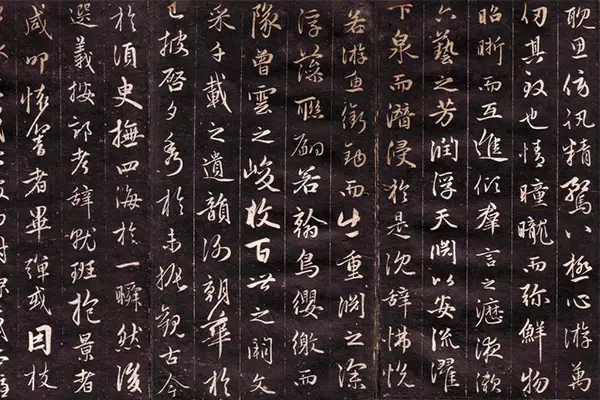 耽思傍訊精騖八極心游萬
仞其致也情曈曨而弥鮮物
昭晰而互進傾羣言之瀝液漱
六藝之芳潤浮天淵以安流濯
下泉而潛浸於是沈辭怫悅
若游魚銜鉤而出重淵之深
浮藻聯翩若翰鳥纓繳而
墜曾雲之峻收百世之闕文
采千載之遺韻謝朝華於
已披啓夕秀於未振觀古今
於須臾撫四海於一瞬然後
選義按部考辭就班抱景者
咸叩懷響者畢彈或因枝